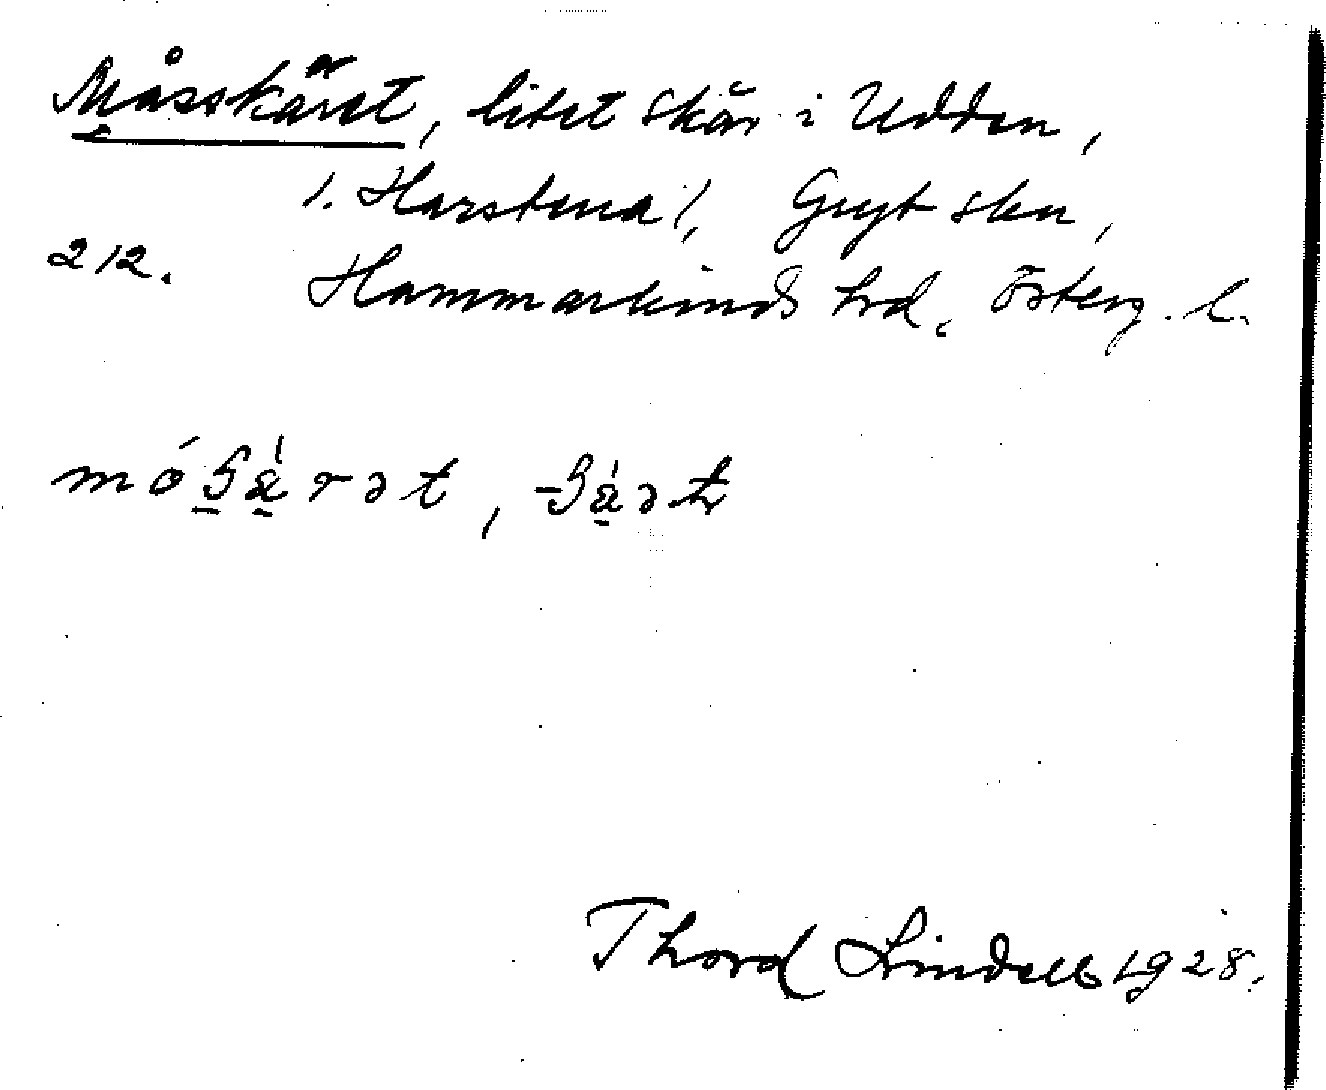 Måsskäret, litet skär i Udden,
/. Harstena /, Gryt skn,
212. Hammarkinds hrd, Österg. l.
Thord Lindell 1928.